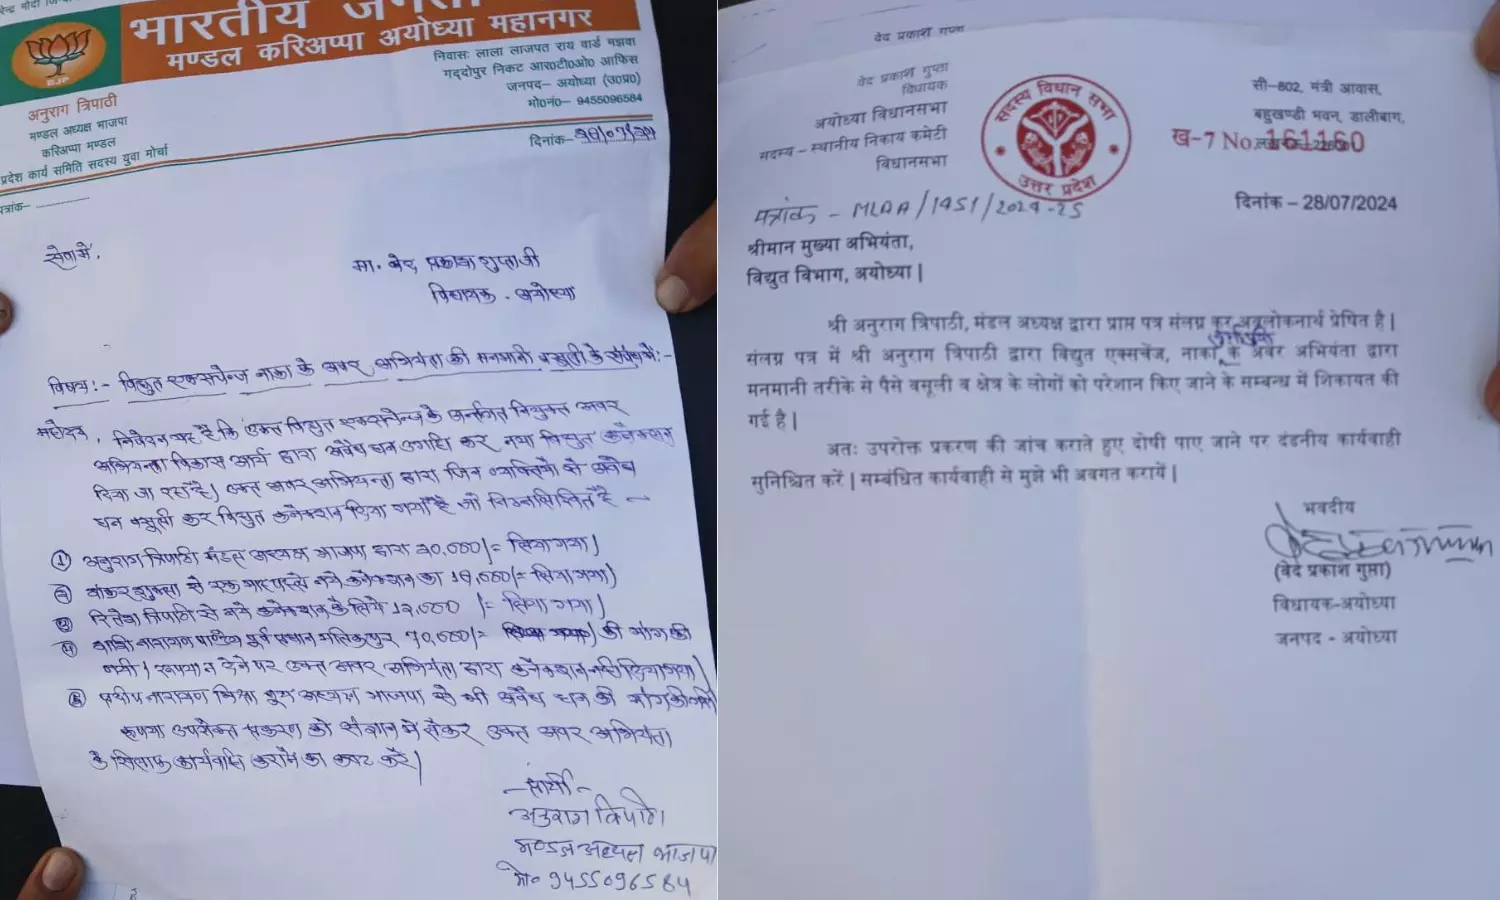 भारतीय
मण्डल करिअप्पा अयोध्या महानगर
BJP
निवासः लाला लाजपत राय वार्ड मझवा
गद्दोपुर निकट आर०टी०ओ० आफिस
जनपद– अयोध्या (उ०प्र०)
मो०नं०– 9455096584
अनुराग त्रिपाठी
मण्डल अध्यक्ष भाजपा
करिअप्पा मण्डल
प्रदेश कार्य समिति सदस्य युवा मोर्चा
दिनांक–
पत्रांक–
सेवा में,
मा. वेद प्रकाश गुप्ता जी
विधायक - अयोध्या
विषय:- विद्युत एक्सचेन्ज नाका के अवर अभियंता की मनमानी वसूली के संबंध में:-
महोदय, निवेदन यह है कि उक्त विद्युत एक्सचेन्ज के अर्न्तगत नियुक्त अवर
अभियन्ता विकास आर्य द्वारा अवैध धन उगाही कर नया विद्युत कनेक्शन
दिया जा रहा है। उक्त अवर अभियन्ता द्वारा जिन व्यक्तियों से अवैध
धन वसूली कर विद्युत कनेक्शन दिया गया है जो निम्नलिखित है
① अनुराग त्रिपाठी मंडल अध्यक्ष भाजपा द्वारा लिया गया।
शुक्ला से एक नये कनेक्शन का लिया गया)
रितेश त्रिपाठी से नये कनेक्शन के लिये 12,000 /= लिया गया)
नारायण पाण्डेय पूर्व प्रधान मलिकपुर की मांग की
गयी। रूपया न देने पर उक्त अवर अभियंता द्वारा कनेक्शन नही दिया गया।
नारायण मिश्रा अध्यक्ष भाजपा से भी अवैध धन की मांग की गयी
कृपया उपरोक्त प्रकरण को संज्ञान में लेकर उक्त अवर अभियंता
के खिलाफ कार्यवाही कराने का कष्ट करें।
प्रार्थी
अनुराग त्रिपाठी
मण्डल अध्यक्ष भाजपा
मो० 9455096584
वेद प्रकाश गुप्ता
वेद प्रकाश गुप्ता
विधायक
अयोध्या विधानसभा
सदस्य – स्थानीय निकाय कमेटी
विधानसभा
सदस्य विधान सभा
उत्तर प्रदेश
सी–802, मंत्री आवास,
बहुखण्डी भवन, डालीबाग,
ख-7 No. 161160
पत्रांक - MLAA/1951/2024-25
दिनांक – 28/07/2024
श्रीमान मुख्या अभियंता,
विद्युत विभाग, अयोध्या |
श्री अनुराग त्रिपाठी, मंडल अध्यक्ष द्वारा प्राप्त पत्र संलग्न कर अवलोकनार्थ प्रेषित है |
संलग्न पत्र में श्री अनुराग त्रिपाठी द्वारा विद्युत एक्सचेंज, नाका के अवर अभियंता द्वारा
मनमानी तरीके से पैसे वसूली व क्षेत्र के लोगों को परेशान किए जाने के सम्बन्ध में शिकायत की
गई है |
अतः उपरोक्त प्रकरण की जांच कराते हुए दोषी पाए जाने पर दंडनीय कार्यवाही
सुनिश्चित करें | सम्बंधित कार्यवाही से मुझे भी अवगत करायें |
भवदीय
(वेद प्रकाश गुप्ता)
विधायक-अयोध्या
जनपद - अयोध्या